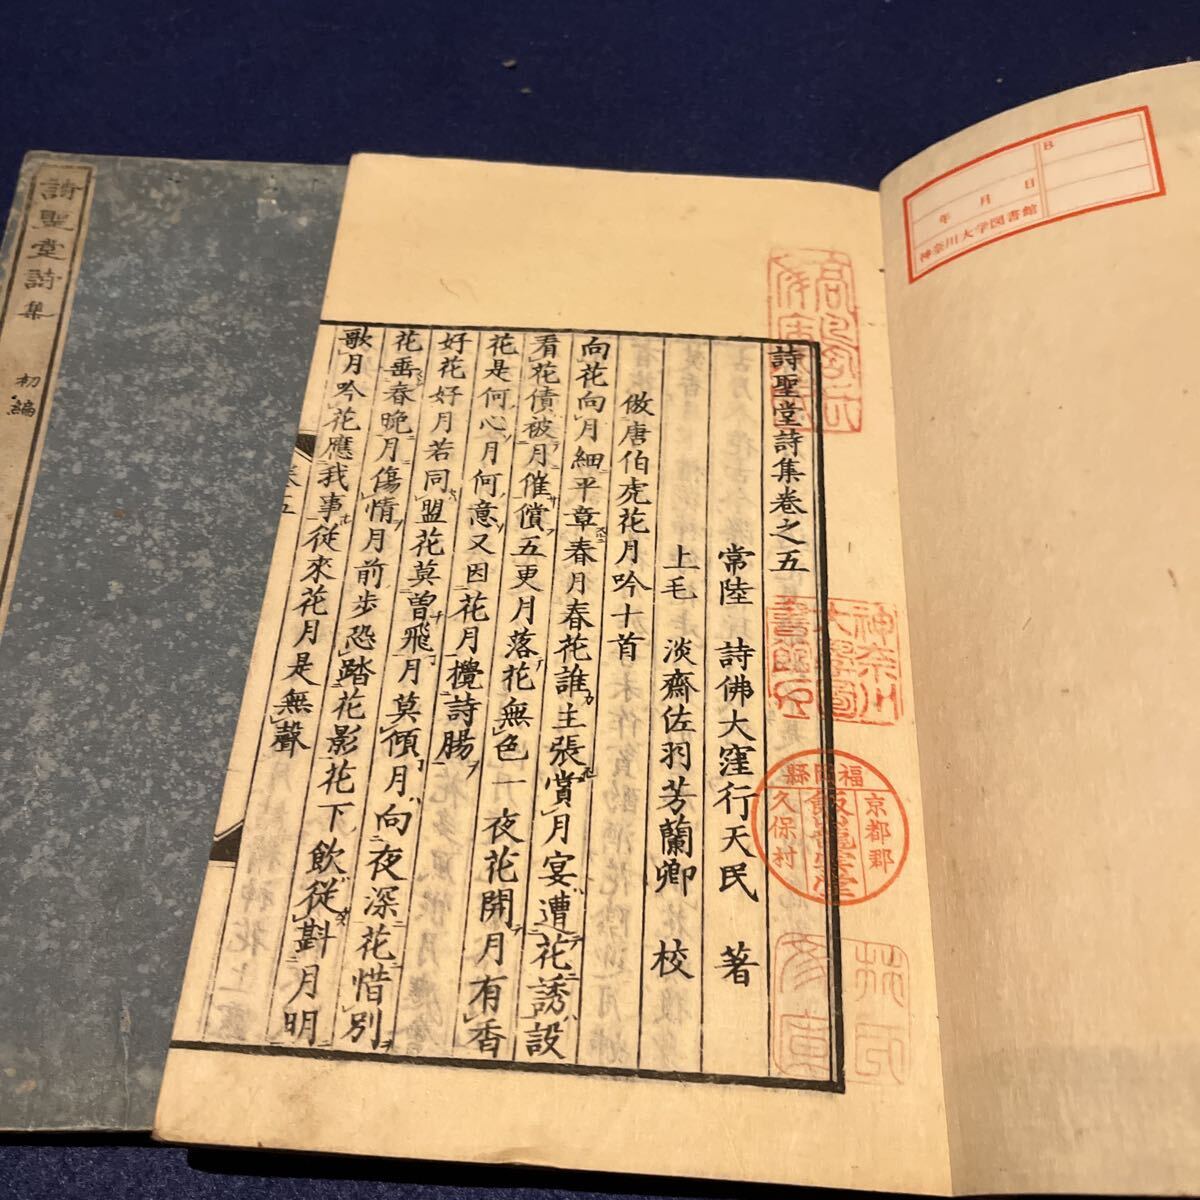 詩聖堂詩集巻之五
常陸 詩佛大窪行天民 著
上毛 淡齋佐羽芳蘭卿 校
倣唐伯虎花月吟十首
向花向月細平章春月春花誰主張賞月宴遭花誘設
看花債被月催償五更月落花無色一夜花開月有香
花是何心月何意又因花月攪詩腸
好花好月若同盟花莫曾飛月莫傾月向夜深花惜別
花垂春晩月傷情月前步恐踏花影花下飲從斟月明
歌月吟花應我事從來花月是無聲
詩聖堂詩集 初編
B
年 月 日
神奈川大学図書館
神奈川
大學圖
書館印
福岡縣
京都郡
久保村